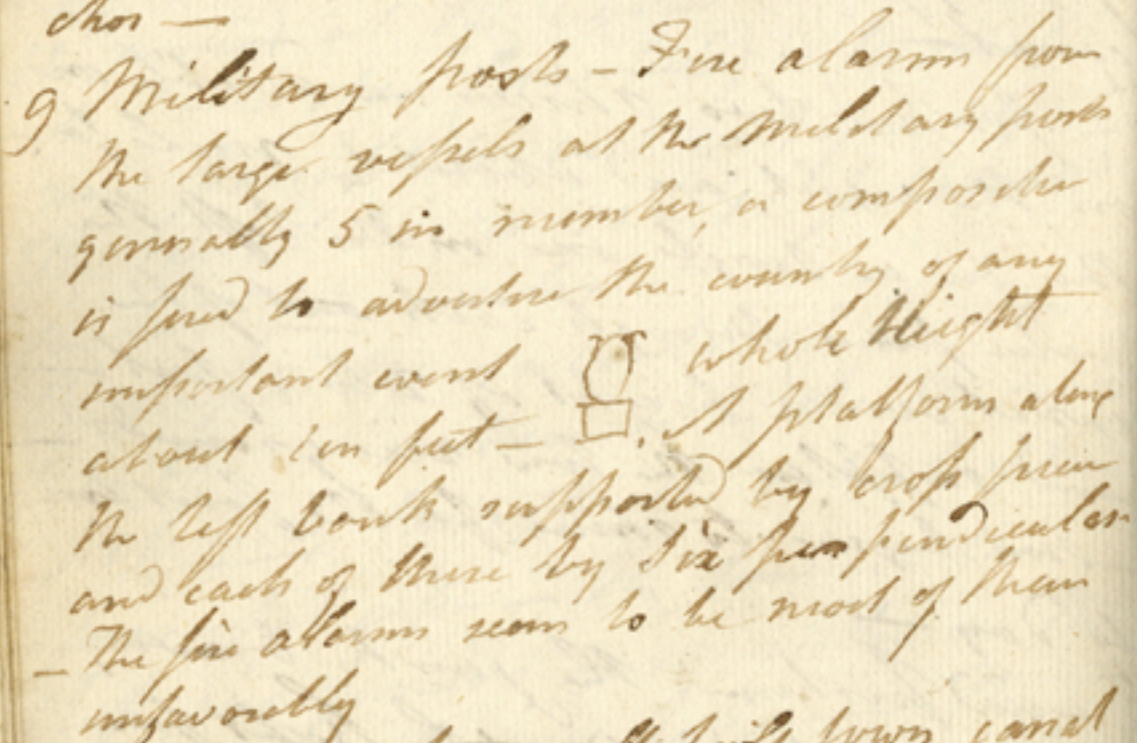 chor —
9 Military posts — Fire alarms from
the large vessels at the Military posts
generally 5 in number, a composition
is fired to advertise the country of any
important event whole Height
about ten feet — . A platform along
the left bank supported by cross
and each of these by six perpendicular
— The fire alarms seem to be most of them
unfavorably
town canal